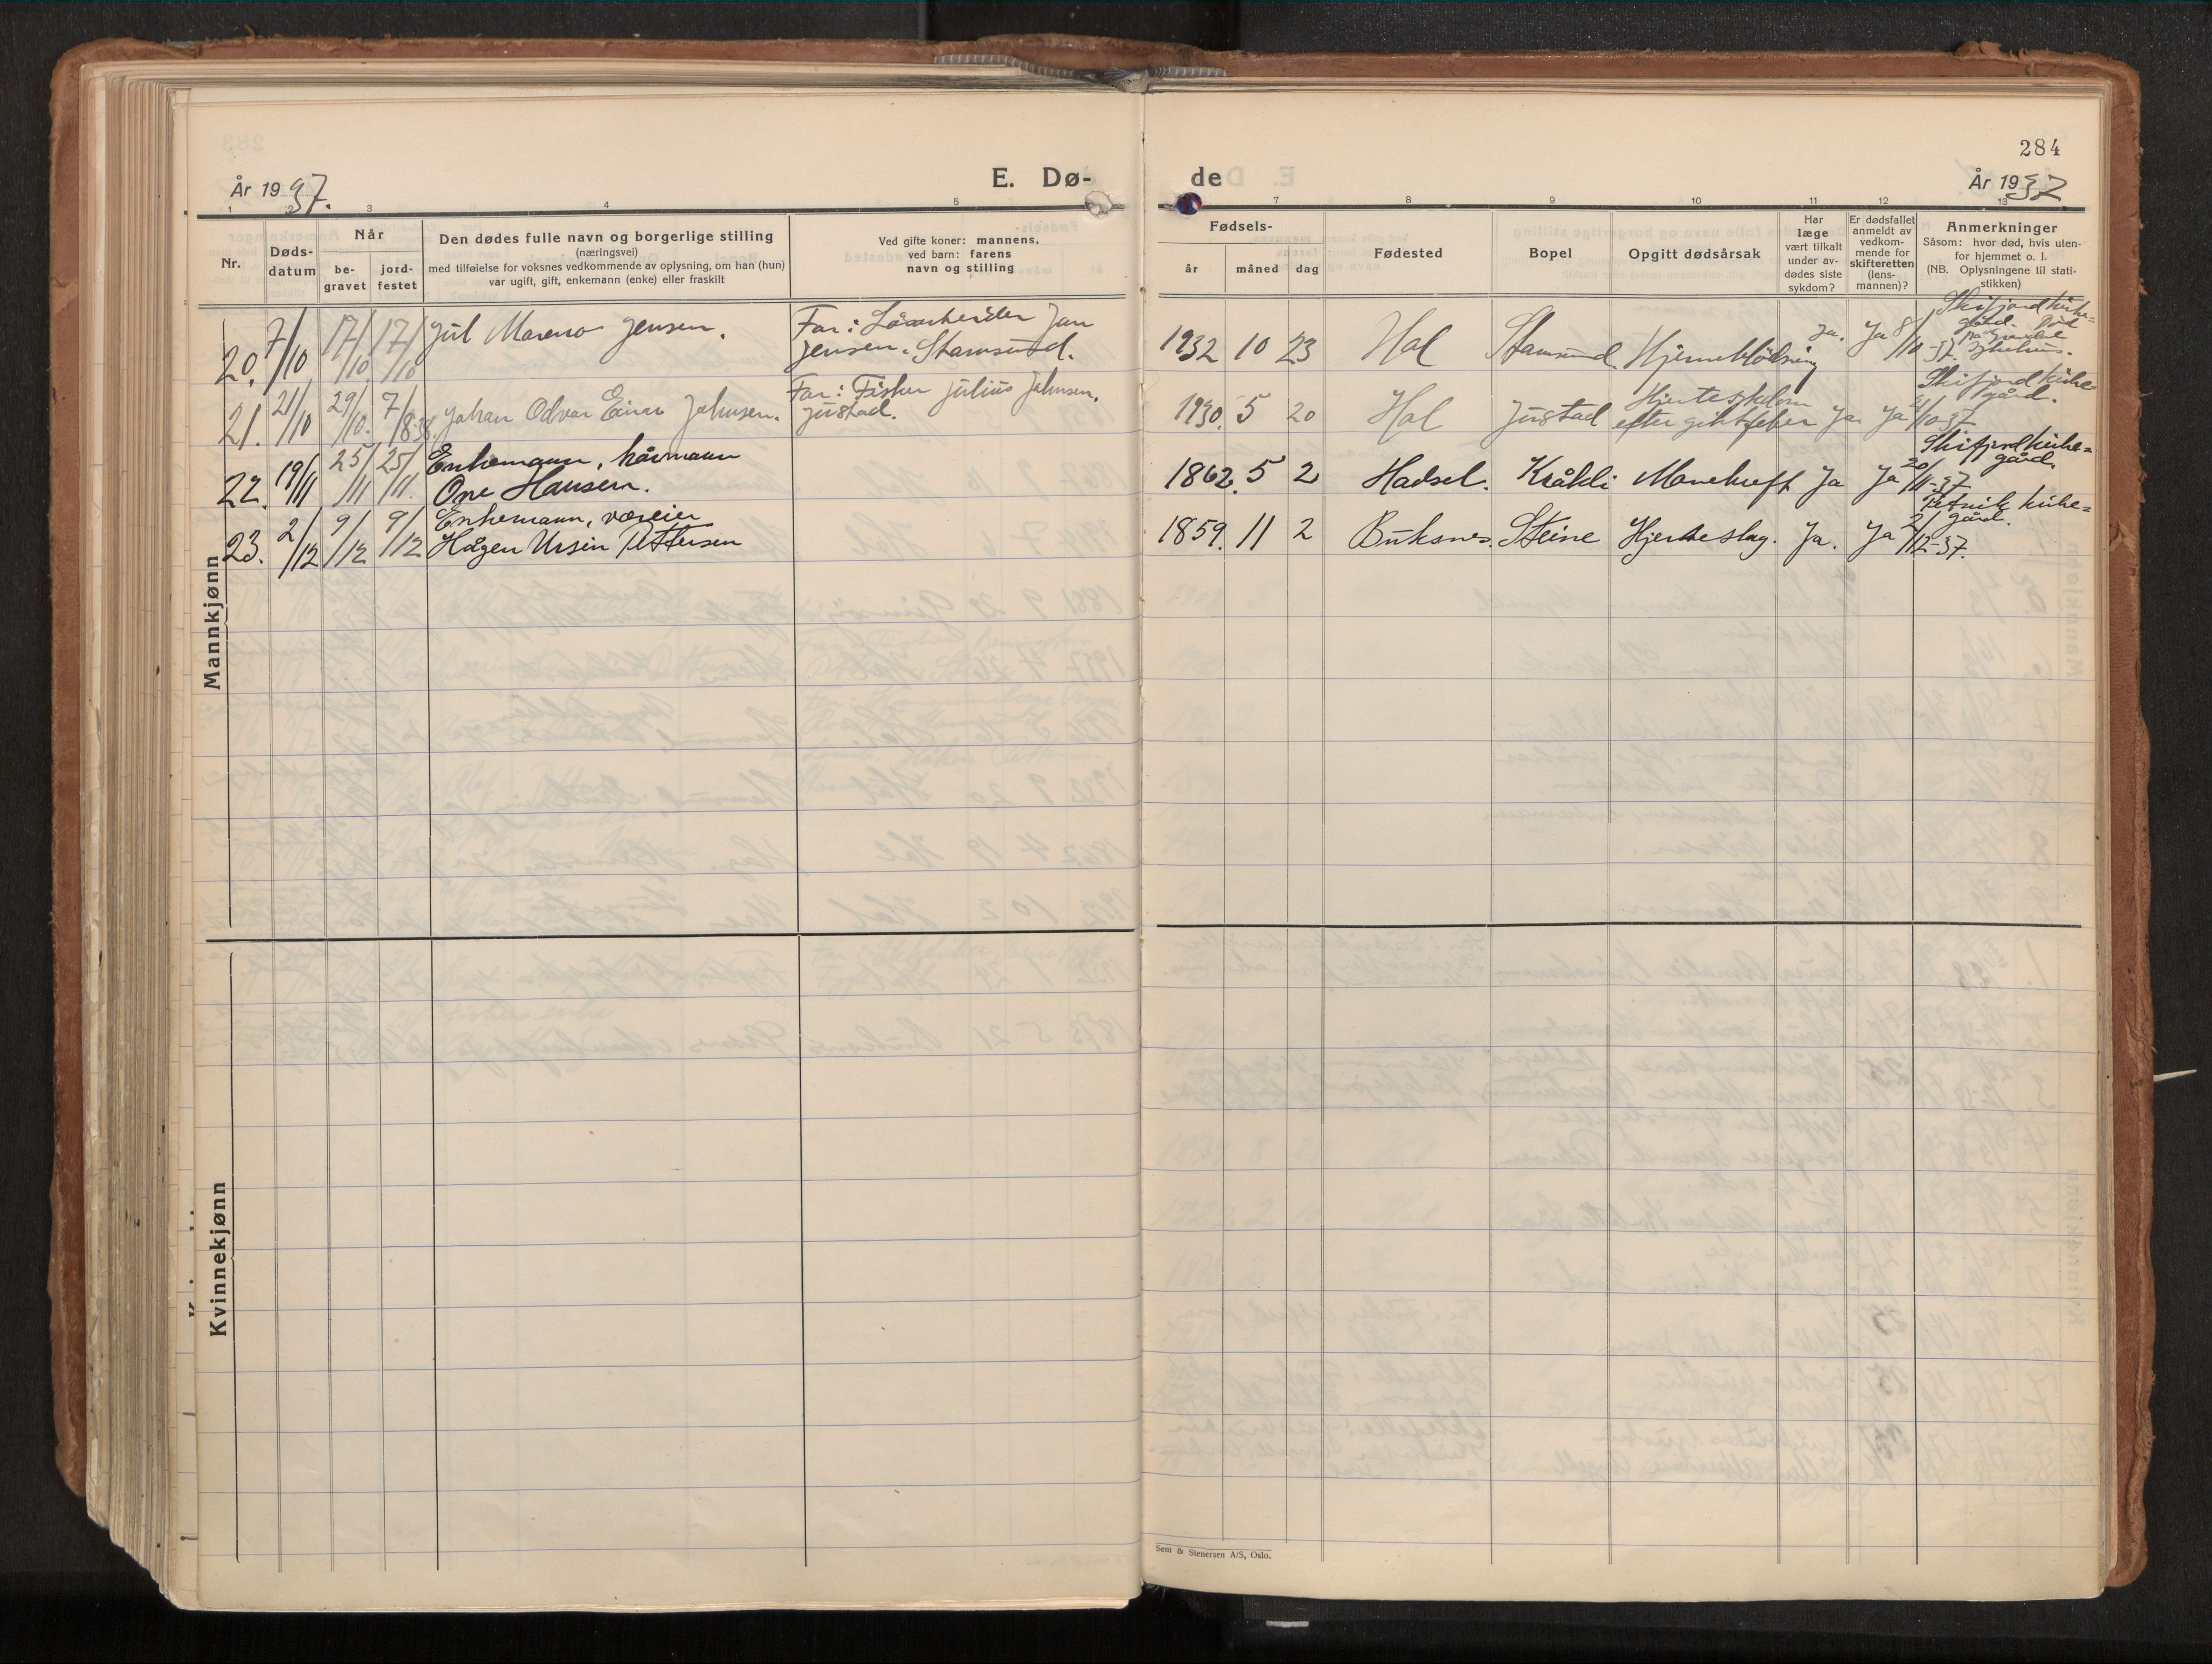 284
År 1937.
E. Dø-
de
År 1937.
1 2 3 4 5
7 8 9 10 11 12 13
Nr.
Døds-
datum
Når
be-
gravet
jord-
festet
Den dødes fulle navn og borgerlige stilling
(næringsvei)
med tilføielse for voksnes vedkommende av oplysning, om han (hun)
var ugift, gift, enkemann (enke) eller fraskilt
Ved gifte koner: mannens,
ved barn: farens
navn og stilling
Fødsels-
år
måned
dag
Fødested
Bopel
Opgitt dødsårsak
Har
læge
vært tilkalt
under av-
dødes siste
sykdom?
Er dødsfallet
anmeldt av
vedkom-
mende for
skifteretten
(lens-
mannen)?
Anmerkninger
Såsom: hvor død, hvis uten-
for hjemmet o. l.
(NB. Oplysningene til stati-
stikken)
Mannkjønn
20. 7/10 17/10 17/10 Jul Mareno Jensen.
Far: Løsarbeider Jan
Jensen. Stamsund.
1932 10 23 Hol Stamsund. Hjerneblödning ja. Ja 8/10 37.
Skifjord kirke=
gård. Död
på Gravdal
sykehus.
21. 21/10 29/10. 7/8.38. Johan Odvar Einar Johnsen.
Far: Fisker Julius Johnsen.
Justad.
1930. 5 20 Hol Justad Hjertesykdom
efter giktfeber Ja Ja /10-37
Skifjord kirke
gård.
22. 19/11 25/11 25/11. Enkemann, kårmann
One Hansen.
1862. 5 2 Hadsel. Kråkli Marekreft Ja Ja 20/11-37
Skifjord kirke=
gård.
23. 2/12 9/12 9/12 Enkemann, væreier
Hågen Ursin Pettersen
1859. 11 2 Buksnes. Steine Hjerteslag. Ja. Ja 2/12-37.
kirke=
gård.
Kvinnekjønn
Sem & Stenersen A/S, Oslo.